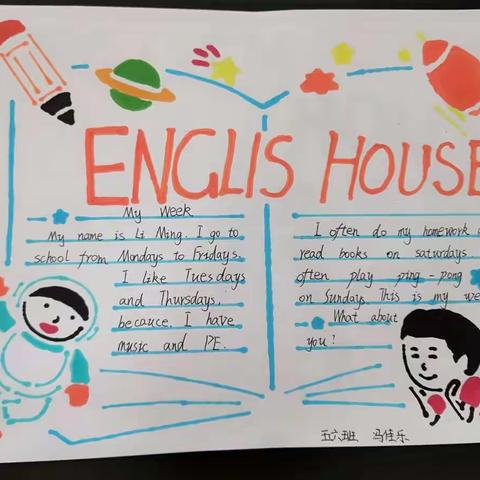 ENGLIS HOUSE
My Week
My name is Li Ning. I go to
school from Mondays to Fridays.
I Like Tuesdays
and Thursdays,
becauce. I have
music and PE.
I often do my homework
read books on saturdays.
often play ping-pong
on Sundays. This is my
What about
you?
五六班 冯佳乐